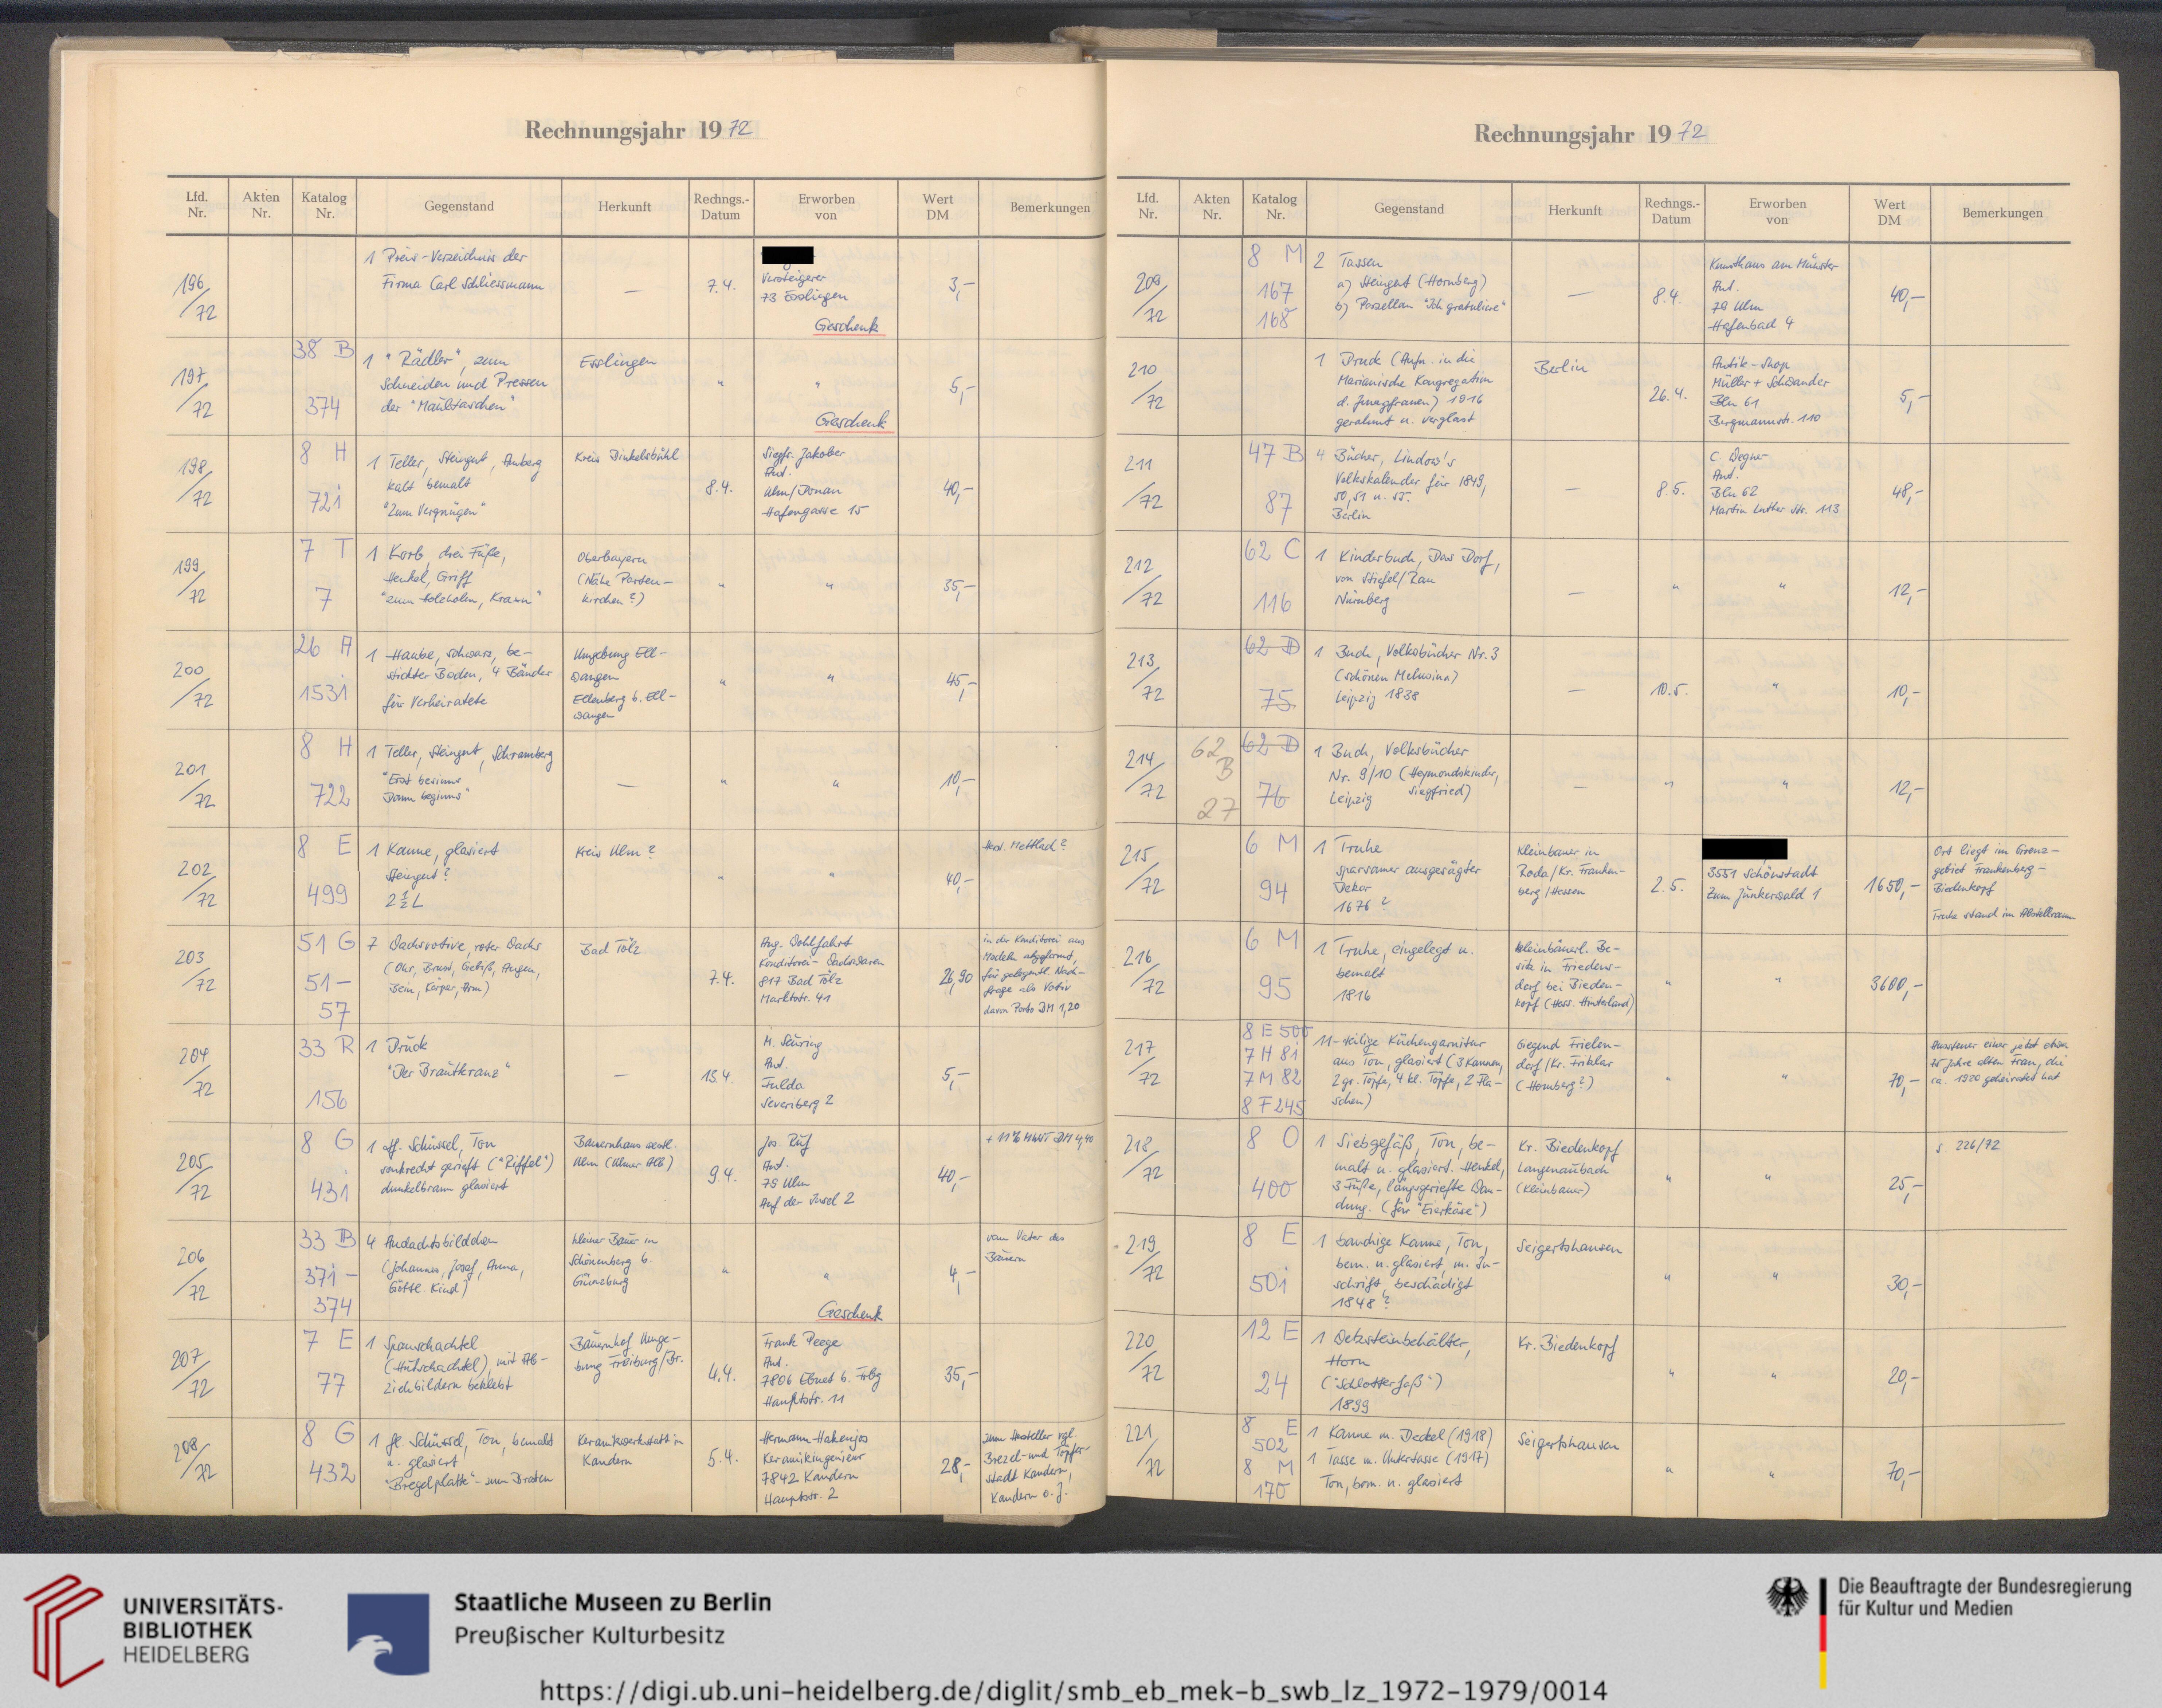 Rechnungsjahr 1972
Lfd. Nr.
Akten Nr.
Katalog Nr.
Gegenstand
Herkunft
Rechngs.-Datum
Erworben von
Wert DM
Bemerkungen
196/72
1 Preis-Verzeichnis der
Firma Carl Schliessmann
—
7.4.
Versteigerer
73 Esslingen
Geschenk
3,-
197/72
38 B
374
1 "Rädler", zum
Schneiden und Pressen
der "Maultaschen"
Esslingen
"
"
Geschenk
5,-
198/72
8 H
721
1 Teller, Steingut, Amberg
kalt bemalt
"Zum Vergnügen"
Kreis Dinkelsbühl
8.4.
Siegfr. Jakober
Ant.
Ulm/Donau
Hafengasse 15
40,-
199/72
7 T
7
1 Korb, drei Füße,
Henkel, Griff
"zum Holzholen, Kraxn"
Oberbayern
(Nähe Parten-
kirchen?)
"
"
35,-
200/72
26 A
1531
1 Haube, schwarz, be-
stickter Boden, 4 Bänder
für Verheiratete
Umgebung Ell-
wangen
Ellenberg b. Ell-
wangen
"
"
45,-
201/72
8 H
722
1 Teller, Steingut, Schramberg
"Erst besinns
Dann beginns"
—
"
"
10,-
202/72
8 E
499
1 Kanne, glasiert
Steingut?
2 ½ L
Kreis Ulm?
"
"
40,-
Herst. Mettlach?
203/72
51 G
51-
57
7 Wachsvotive, roter Wachs
(Ohr, Brust, Gebiß, Augen,
Bein, Körper, Arm)
Bad Tölz
7.4.
Aug. Wohlfahrt
Konditorei-Wachswaren
817 Bad Tölz
Marktstr. 41
26,90
in der Konditorei aus
Modeln abgeformt,
für gelegentl. Nach-
frage als Votiv
davon Porto DM 1,20
204/72
33 R
156
1 Druck
"Der Brautkranz"
—
13.4.
M. Seuring
Ant.
Fulda
Severiberg 2
5,-
205/72
8 G
431
1 gf. Schüssel, Ton
senkrecht gerieft ("Riffel")
dunkelbraun glasiert
Bauernhaus westl.
Ulm (Ulmer Alb)
9.4.
Jos. Ruf
Ant.
79 Ulm
Auf der Insel 2
40,-
+ 11% MWST DM 4,40
206/72
33 B
371-
374
4 Andachtsbildchen
(Johannes, Josef, Anna,
Göttl. Kind)
kleiner Bauer in
Schönenberg b.
Günzburg
"
"
Geschenk
4,-
vom Vater des
Bauern
207/72
7 E
77
1 Spanschachtel
(Hutschachtel), mit Ab-
ziehbildern beklebt
Bauernhof Umge-
bung Freiburg/Br.
4.4.
Frank Peege
Ant.
7806 Ebnet b. Frbg
Hauptstr. 11
35,-
208/72
8 G
432
1 fl. Schüssel, Ton, bemalt
u. glasiert
"Bregelplatte" - zum Braten
Keramikwerkstatt in
Kandern
5.4.
Hermann Hakenjos
Keramikingenieur
7842 Kandern
Hauptstr. 2
28,-
zum Hersteller vgl.
Brezel- und Töpfer-
stadt Kandern,
Kandern o. J.
Rechnungsjahr 1972
Lfd. Nr.
Akten Nr.
Katalog Nr.
Gegenstand
Herkunft
Rechngs.-Datum
Erworben von
Wert DM
Bemerkungen
209/72
8 M
167
168
2 Tassen
a) Steingut (Hornberg)
b) Porzellan "Ich gratuliere"
—
8.4.
Kunsthaus am Münster
Ant.
79 Ulm
Hafenbad 4
40,-
210/72
1 Druck (Aufn. in die
Marianische Kongregation
d. Jungfrauen) 1916
gerahmt u. verglast
Berlin
26.4.
Antik-Shop
Müller + Schwander
Bln 61
Bergmannstr. 110
5,-
211/72
47 B
87
4 Bücher, Lindow's
Volkskalender für 1849,
50, 51 u. 55.
Berlin
—
8.5.
C. Wegner
Ant.
Bln 62
Martin Luther Str. 113
48,-
212/72
62 C
116
1 Kinderbuch, Das Dorf,
von Stiefel/Rau
Nürnberg
—
"
"
12,-
213/72
62 D
75
1 Buch, Volksbücher Nr. 3
(schönen Melusina)
Leipzig 1838
—
10.5.
"
10,-
214/72
62
B
27
62 D
76
1 Buch, Volksbücher
Nr. 9/10 (Heymondskinder,
Leipzig Siegfried)
—
"
"
12,-
215/72
6 M
94
1 Truhe
sparsamer ausgesägter
Dekor
1676?
Kleinbauer in
Roda/Kr. Franken-
berg/Hessen
2.5.
3551 Schönstadt
Zum Junkerwald 1
1650,-
Ort liegt im Grenz-
gebiet Frankenberg-
Biedenkopf
Truhe stand im Abstellraum
216/72
6 M
95
1 Truhe, eingelegt u.
bemalt
1816
kleinbäuerl. Be-
sitz in Friedens-
dorf bei Bieden-
kopf (Hess. Hinterland)
"
"
3600,-
217/72
8 E 500
7 H 81
7 M 82
8 F 245
11-teilige Küchengarnitur
aus Ton, glasiert (3 Kannen,
2 gr. Töpfe, 4 kl. Töpfe, 2 Fla-
schen)
Gegend Frielen-
dorf/Kr. Fritzlar
(Homberg?)
"
"
70,-
Aussteuer einer jetzt etwa
75 Jahre alten Frau, die
ca. 1920 geheiratet hat
218/72
8 O
400
1 Siebgefäß, Ton, be-
malt u. glasiert. Henkel,
3 Füße, längsgeriefte Wan-
dung. (für "Eierkäse")
Kr. Biedenkopf
Langenaubach
(Kleinbauer)
"
"
25,-
s 226/72
219/72
8 E
501
1 bauchige Kanne, Ton,
bem. u. glasiert, m. In-
schrift, beschädigt
1848?
Seigertshausen
"
"
30,-
220/72
12 E
24
1 Wetzsteinbehälter,
Horn
("Schlotterfaß")
1899
Kr. Biedenkopf
"
"
20,-
221/72
8 E
502
8 M
170
1 Kanne m. Deckel (1918)
1 Tasse m. Untertasse (1917)
Ton, bem. u. glasiert
Seigertshausen
"
"
70,-
UNIVERSITÄTS-
BIBLIOTHEK
HEIDELBERG
Staatliche Museen zu Berlin
Preußischer Kulturbesitz
Die Beauftragte der Bundesregierung
für Kultur und Medien
https://digi.ub.uni-heidelberg.de/diglit/smb_eb_mek-b_swb_lz_1972-1979/0014